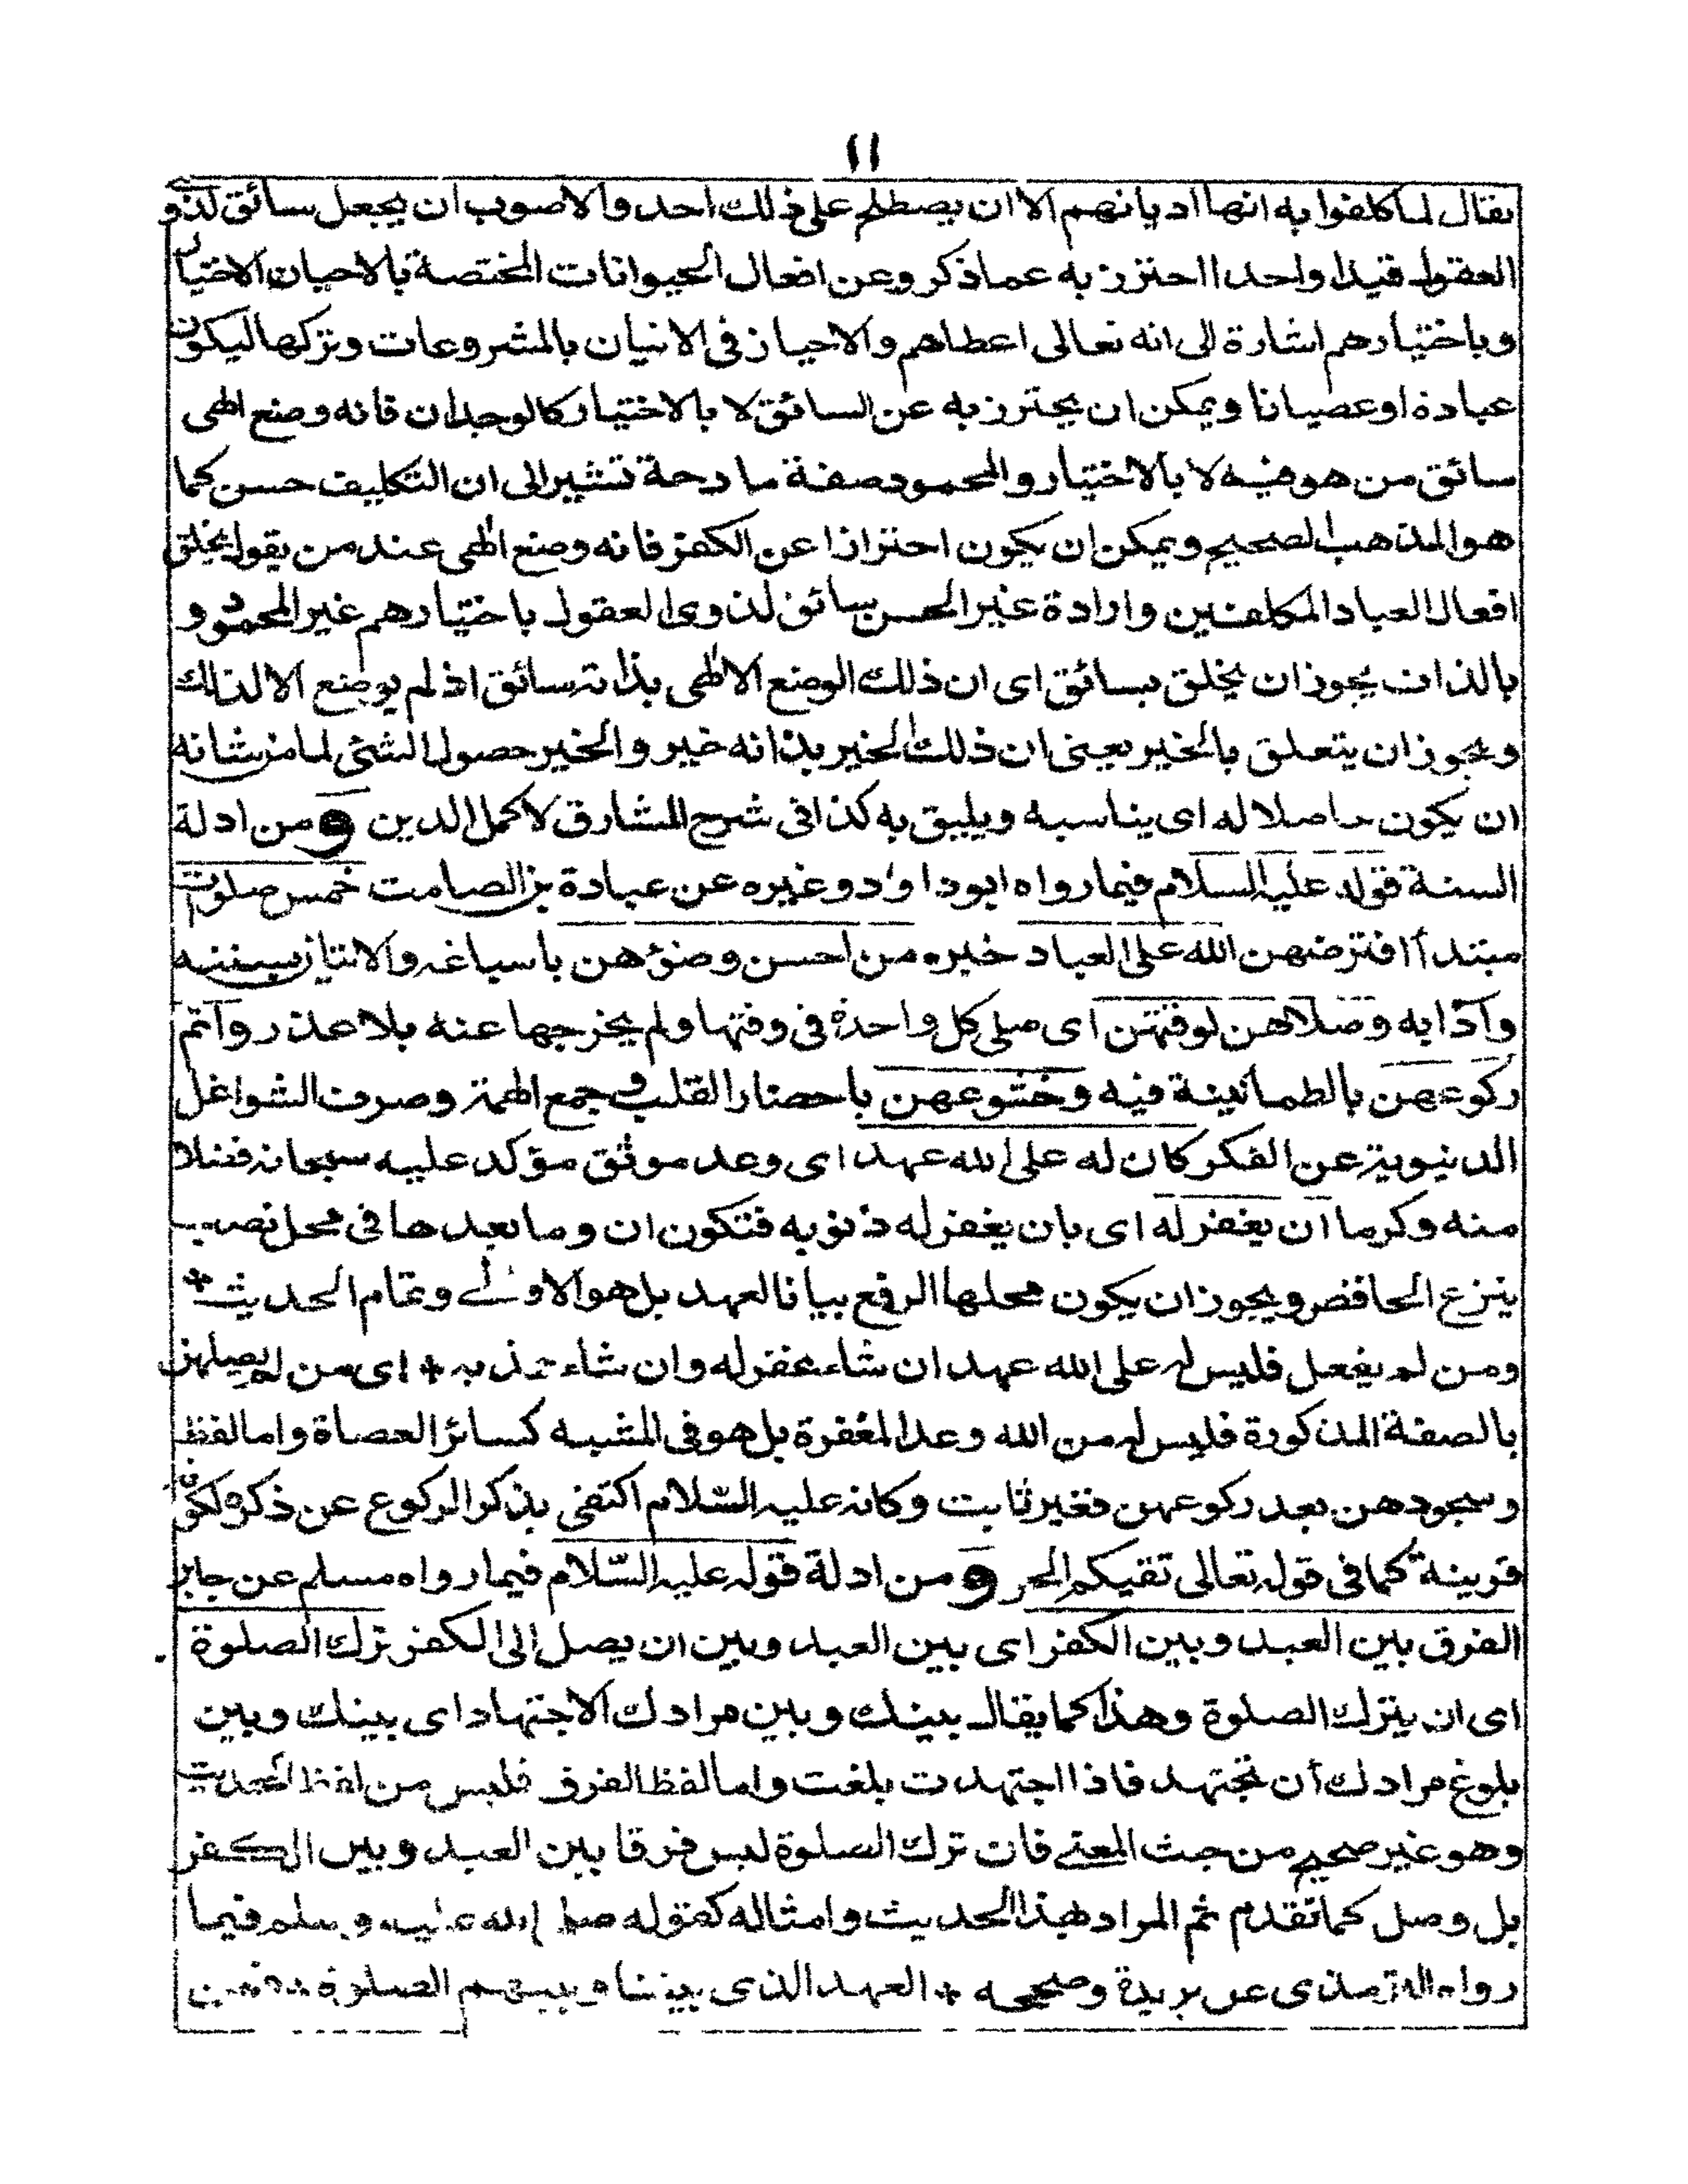 ١١
يقال لما كلفوا به انها اديانهم الا ان يصطلح على ذلك احد والاصوب ان يجعل سائق لذوى
العقول قيدا واحدا احترز به عما ذكر وعن افعال الحيوانات المختصة بالاحيان الاختيار
وباختيارهم اشارة الى انه تعالى اعطاهم والاحياز فى الاتيان بالمشروعات وتركها ليكون
عبادة او عصيانا ويمكن ان يحترز به عن السائق لا بالاختيار كالوجدان فانه وضع الهى
سائق من هو فيه لا بالاختيار والمحمود صفة مادحة تشير الى ان التكليف حسن كما
هو المذهب الصحيح ويمكن ان يكون احترازا عن الكفر فانه وضع الهى عند من يقول بخلق
افعال العباد المكلفين وارادة غير الحسن سائق لذوى العقول باختيارهم غير المحمود و
بالذات يجوز ان يخلق بسائق اى ان ذلك الوضع الالهى بذاته سائق اذ لم يوضع الا لذلك
ويجوز ان يتعلق بالخير يعنى ان ذلك الخير بذاته خير والخير حصول الشئ لما من شانه
ان يكون حاصلا له اى يناسبه ويليق به كذا فى شرح المشارق لاكمل الدين و من ادلة
السنة قوله عليه السلام فيما رواه ابو داود وغيره عن عبادة بن الصامت خمس صلوات
مبتدأ افترضهن الله على العباد خبره من احسن وضوءهن باسباغه والاتيان بسننه
وآدابه وصلاهن لوقتهن اى صلى كل واحدة فى وقتها ولم يخرجها عنه بلا عذر واتم
ركوعهن بالطمأنينة فيه وخشوعهن باحضار القلب و جمع الهمة وصرف الشواغل
الدنيوية عن الفكر كان له على الله عهد اى وعد موثق مؤكد عليه سبحانه فضلا
منه وكرما ان يغفر له اى بان يغفر له ذنوبه فتكون ان وما بعدها فى محل نصب
بنزع الخافض ويجوز ان يكون محلها الرفع بيانا لعهد بل هو الاولى وتمام الحديث *
ومن لم يفعل فليس له على الله عهد ان شاء غفر له وان شاء عذبه * اى من لم يصلهن
بالصفة المذكورة فليس له من الله وعد المغفرة بل هو فى المشيه كسائر العصاة واما لفظ
وسجودهن بعد ركوعهن فغير ثابت وكانه عليه السلام اكتفى بذكر الركوع عن ذكره لكونه
قرينة كما فى قوله تعالى تقيكم الحر و من ادلة قوله عليه السلام فيما رواه مسلم عن جابر
الفرق بين العبد وبين الكفر اى بين العبد وبين ان يصل الى الكفر ترك الصلوة
اى ان يترك الصلوة وهذا كما يقال بينك وبين مرادك الاجتهاد اى بينك وبين
بلوغ مرادك أن تجتهد فاذا اجتهدت بلغت واما لفظ الفرق فليس من لفظ الحديث
وهو غير صحيح من جث المعنى فان ترك الصلوة ليس فرقا بين العبد وبين الكفر
بل وصل كما تقدم ثم المراد بهذا الحديث وامثاله كقوله صلى الله عليه وسلم فيما
رواه الترمذى عن بريدة وصححه * العهد الذى بيننا وبينهم الصلوة